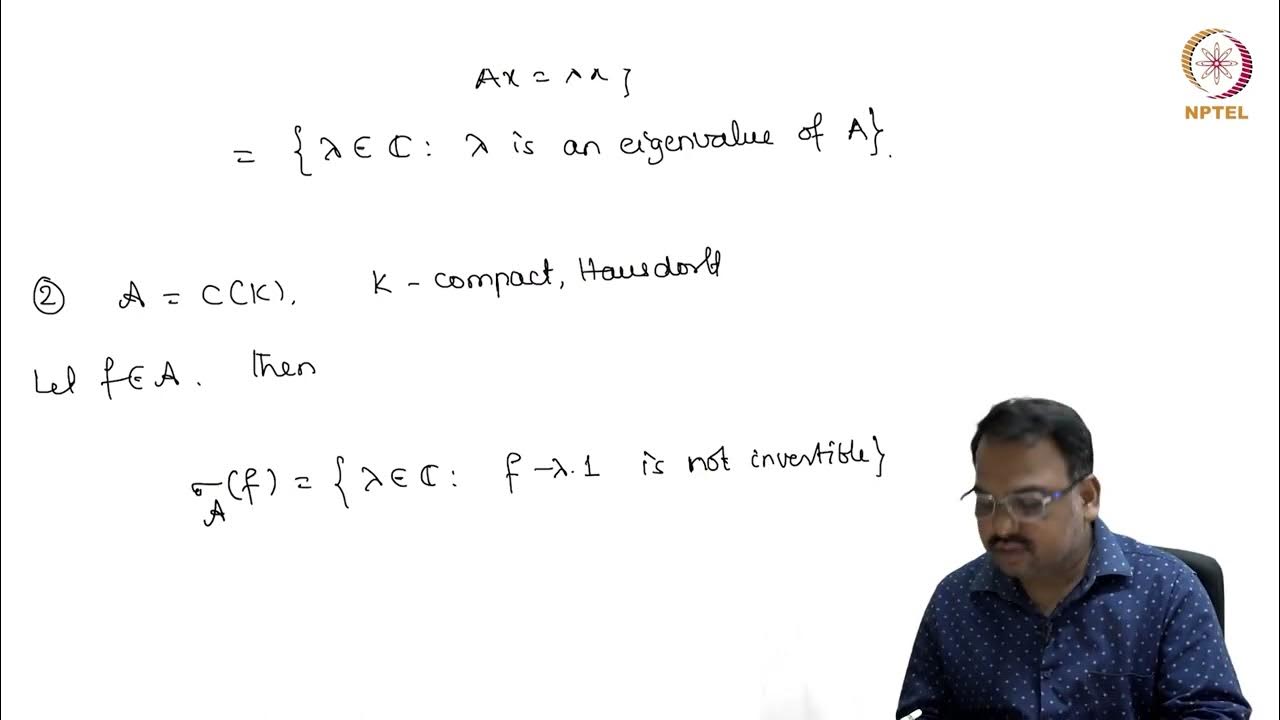 Ax = λx }
= { λ ∈ ℂ : λ is an eigenvalue of A}.
NPTEL
② 𝒜 = C(K), K - compact, Hausdorff
Let f ∈ 𝒜 . Then
σ_𝒜(f) = { λ ∈ ℂ : f - λ.1 is not invertible}